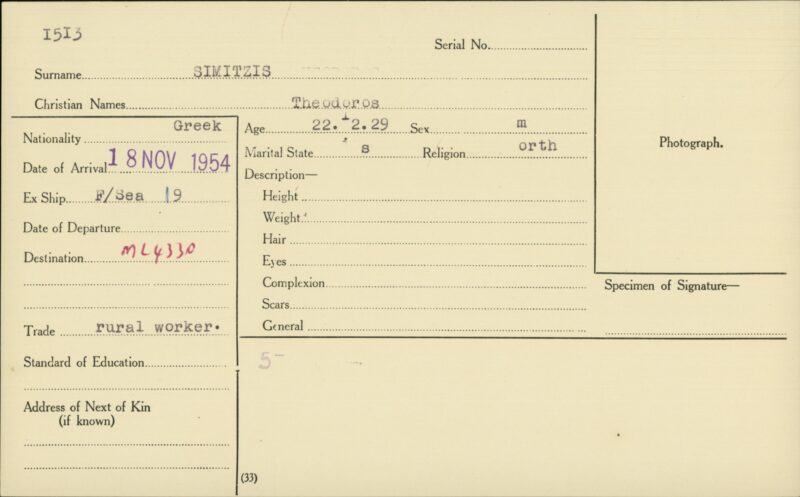 1513
Serial No.
Surname SIMITZIS
Christian Names Theodoros
Nationality Greek
Date of Arrival 18 NOV 1954
Ex Ship F/Sea 19
Date of Departure
Destination ML4330
Trade rural worker.
Standard of Education
Address of Next of Kin
(if known)
Age 22. 2.29 Sex m
Marital State s Religion orth
Description—
Height
Weight
Hair
Eyes
Complexion
Scars
General
5-
(33)
Photograph.
Specimen of Signature—